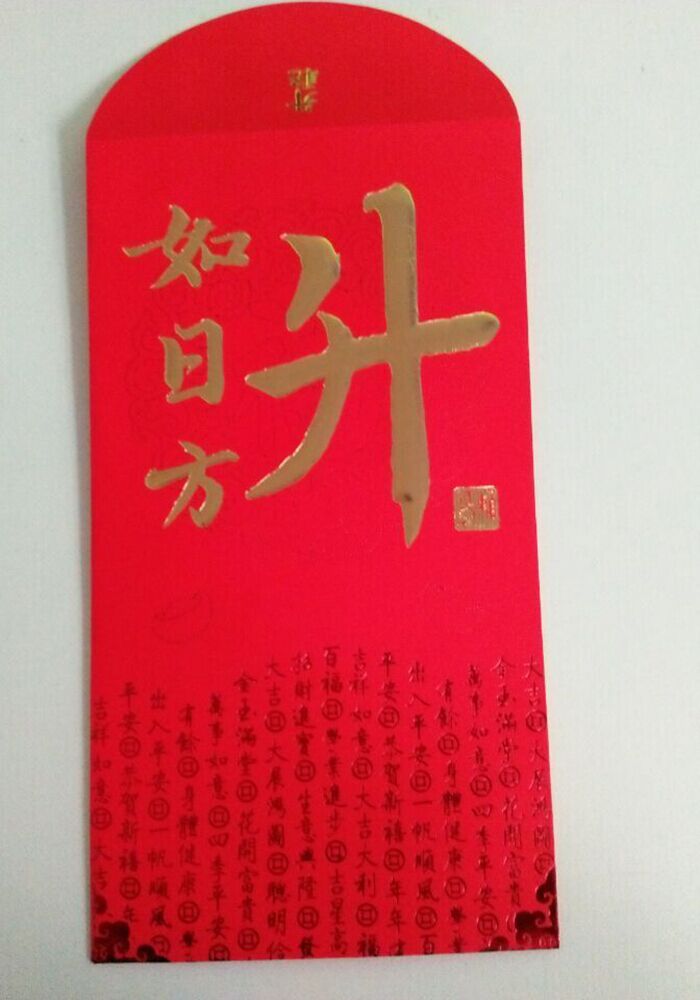 如日方
升
大吉 大展鴻圖
金玉滿堂 花開富貴
萬事如意 四季平安
有餘 身體健康 學業
出入平安 一帆順風 百
平安 恭賀新禧 年年
吉祥如意 大吉大利 福
百福 學業進步 吉星高
招財進寶 生意興隆 發
大吉 大展鴻圖 聰明伶
金玉滿堂 花開富貴
萬事如意 四季平安
有餘 身體健康
出入平安 一帆順風
平安 恭賀新禧 年
吉祥如意 大吉